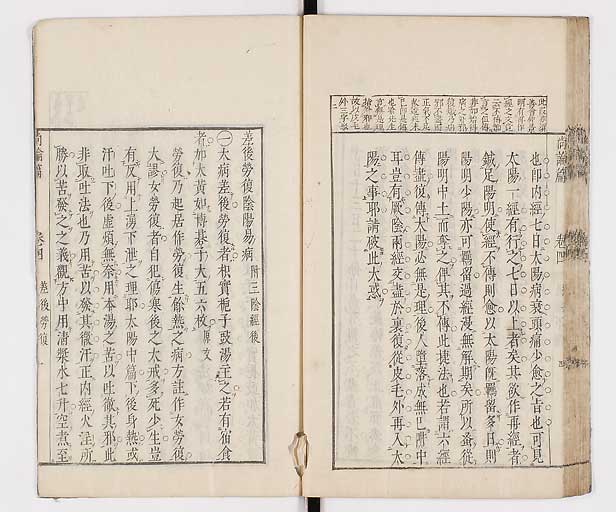 也卽内經七日太陽病衰頭痛少愈之旨也可見
太陽一經有行之七日以上者矣其欲作再經者
鍼足陽明使經不傳則愈以太陽旣羈留多日則
陽明少陽亦可羈留過經漫無解期矣所以蚤從
陽明中土而奪之俾其不傳此捷法也若謂六經
傳盡復傳太陽必無是理後人墮落成無己阱中
耳豈有厥陰兩經交盡於裏復從皮毛外再入太
陽之事耶請破此大惑
尚論篇
卷四
差後勞復陰陽易病 附三陰經後
㊀大病差後勞復者枳實梔子豉湯主之若有宿食
者加大黃如博碁子大五六枚 原文
勞復乃起居作勞復生餘熱之病方註作女勞復
大謬女勞復者自犯傷寒後之大戒多死少生豈
有反用上湧下泄之理耶太陽中篇下後身熱或
汗吐下後虛煩無奈用本湯之苦以吐徹其邪此
非取吐法也乃用苦以發其微汗正内經火淫所
勝以苦發之之義觀方中用清漿水七升空煮至
尚論篇
卷四
差後勞復
一